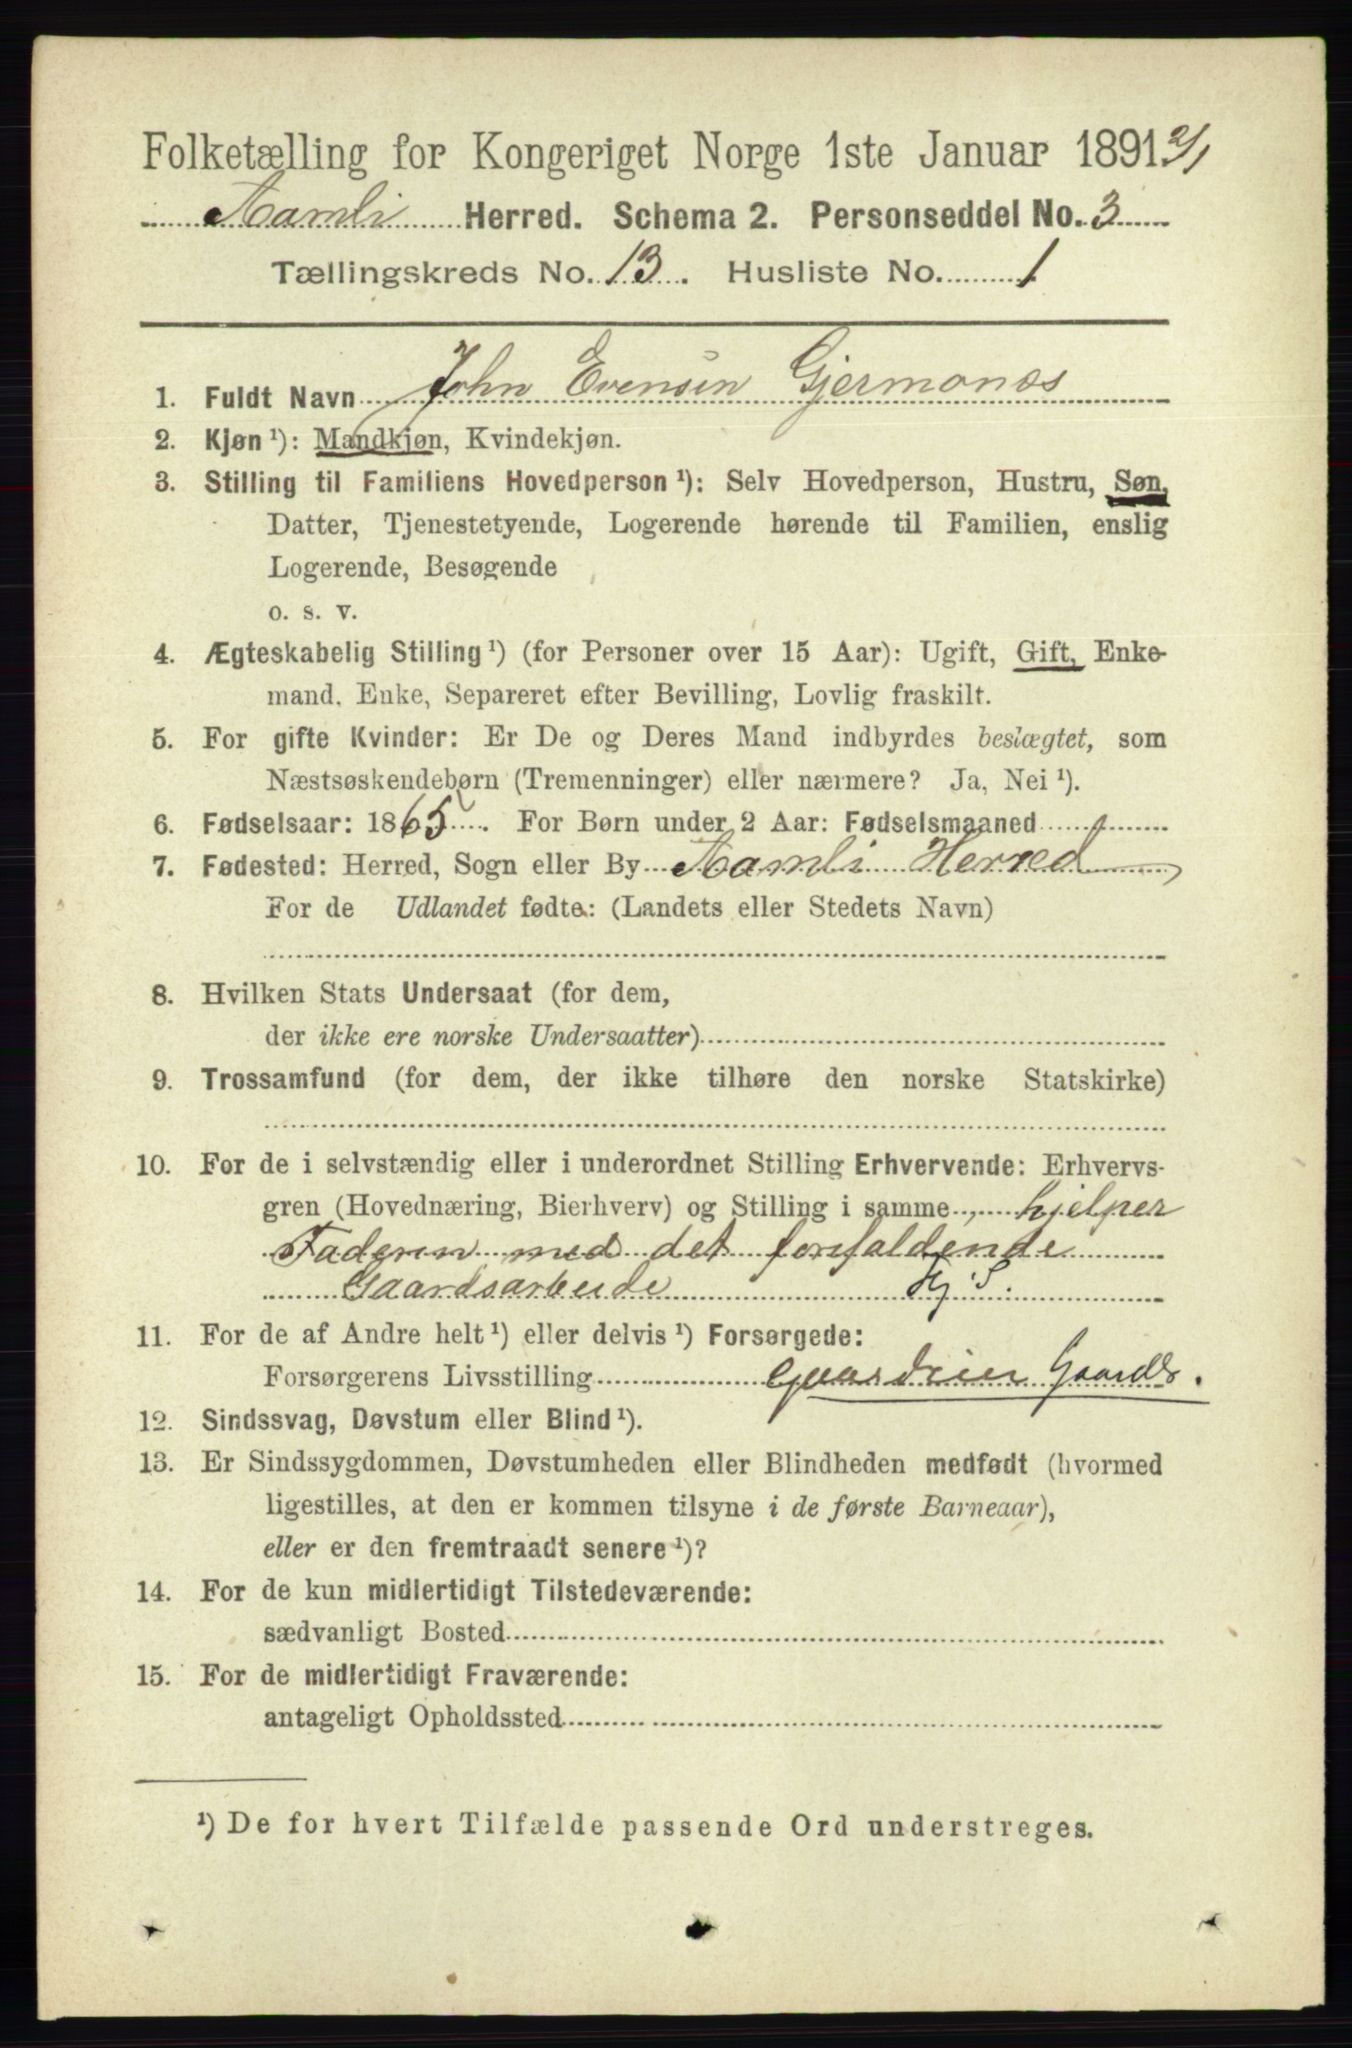 Folketælling for Kongeriget Norge 1ste Januar 1891 2/1
Aamli Herred. Schema 2. Personseddel No. 3
Tællingskreds No. 13. Husliste No. 1
1. Fuldt Navn John Evensen Gjermonæs
2. Kjøn ¹): Mandkjøn, Kvindekjøn.
3. Stilling til Familiens Hovedperson ¹): Selv Hovedperson, Hustru, Søn,
Datter, Tjenestetyende, Logerende hørende til Familien, enslig
Logerende, Besøgende
o. s. v.
4. Ægteskabelig Stilling ¹) (for Personer over 15 Aar): Ugift, Gift, Enke-
mand, Enke, Separeret efter Bevilling, Lovlig fraskilt.
5. For gifte Kvinder: Er De og Deres Mand indbyrdes beslægtet, som
Næstsøskendebørn (Tremenninger) eller nærmere? Ja, Nei ¹).
6. Fødselsaar: 1865. For Børn under 2 Aar: Fødselsmaaned
7. Fødested: Herred, Sogn eller By Aamli Herred
For de Udlandet fødte: (Landets eller Stedets Navn)
8. Hvilken Stats Undersaat (for dem,
der ikke ere norske Undersaatter)
9. Trossamfund (for dem, der ikke tilhøre den norske Statskirke)
10. For de i selvstændig eller i underordnet Stilling Erhvervende: Erhvervs-
gren (Hovednæring, Bierhverv) og Stilling i samme, hjelper
Faderen med det forefaldende
Gaardsarbeide Hj. S.
11. For de af Andre helt ¹) eller delvis ¹) Forsørgede:
Forsørgerens Livsstilling Gaardeier Gaardb.
12. Sindssvag, Døvstum eller Blind ¹).
13. Er Sindssygdommen, Døvstumheden eller Blindheden medfødt (hvormed
ligestilles, at den er kommen tilsyne i de første Barneaar),
eller er den fremtraadt senere ¹)?
14. For de kun midlertidigt Tilstedeværende:
sædvanligt Bosted
15. For de midlertidigt Fraværende:
antageligt Opholdssted
¹) De for hvert Tilfælde passende Ord understreges.